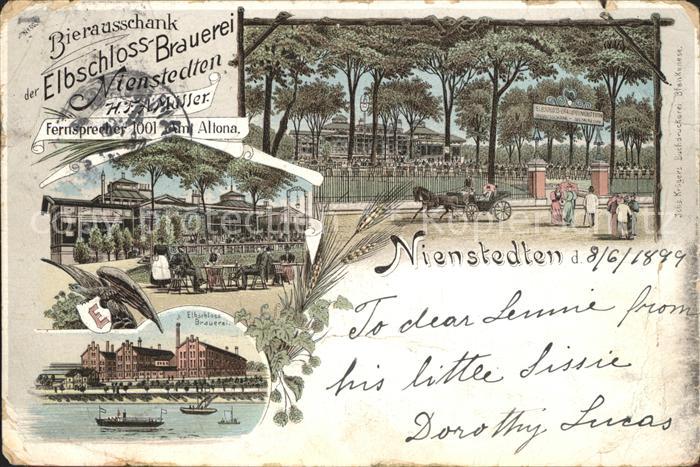 Bierausschank
der Elbschloss-Brauerei
Nienstedten
H. F. A. Müller.
Fernsprecher 1001 Amt Altona.
E
Elbschloss
Brauerei.
Nienstedten d. 8/6/1899
To dear Lennie from
his little Sissie
Dorothy Lucas
Johs Krögers Buchdruckerei Blankenese.